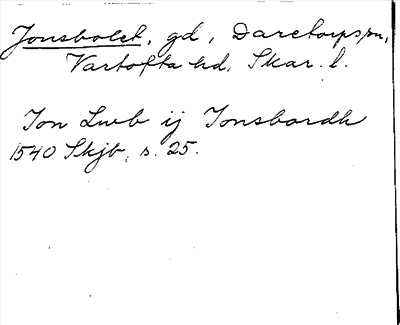 Jonsbolet, gd, Daretorps sn,
Vartofta hd, Skar. l.
Jon Lwb ij Jonsbordh
1540 Skjb, s. 25.